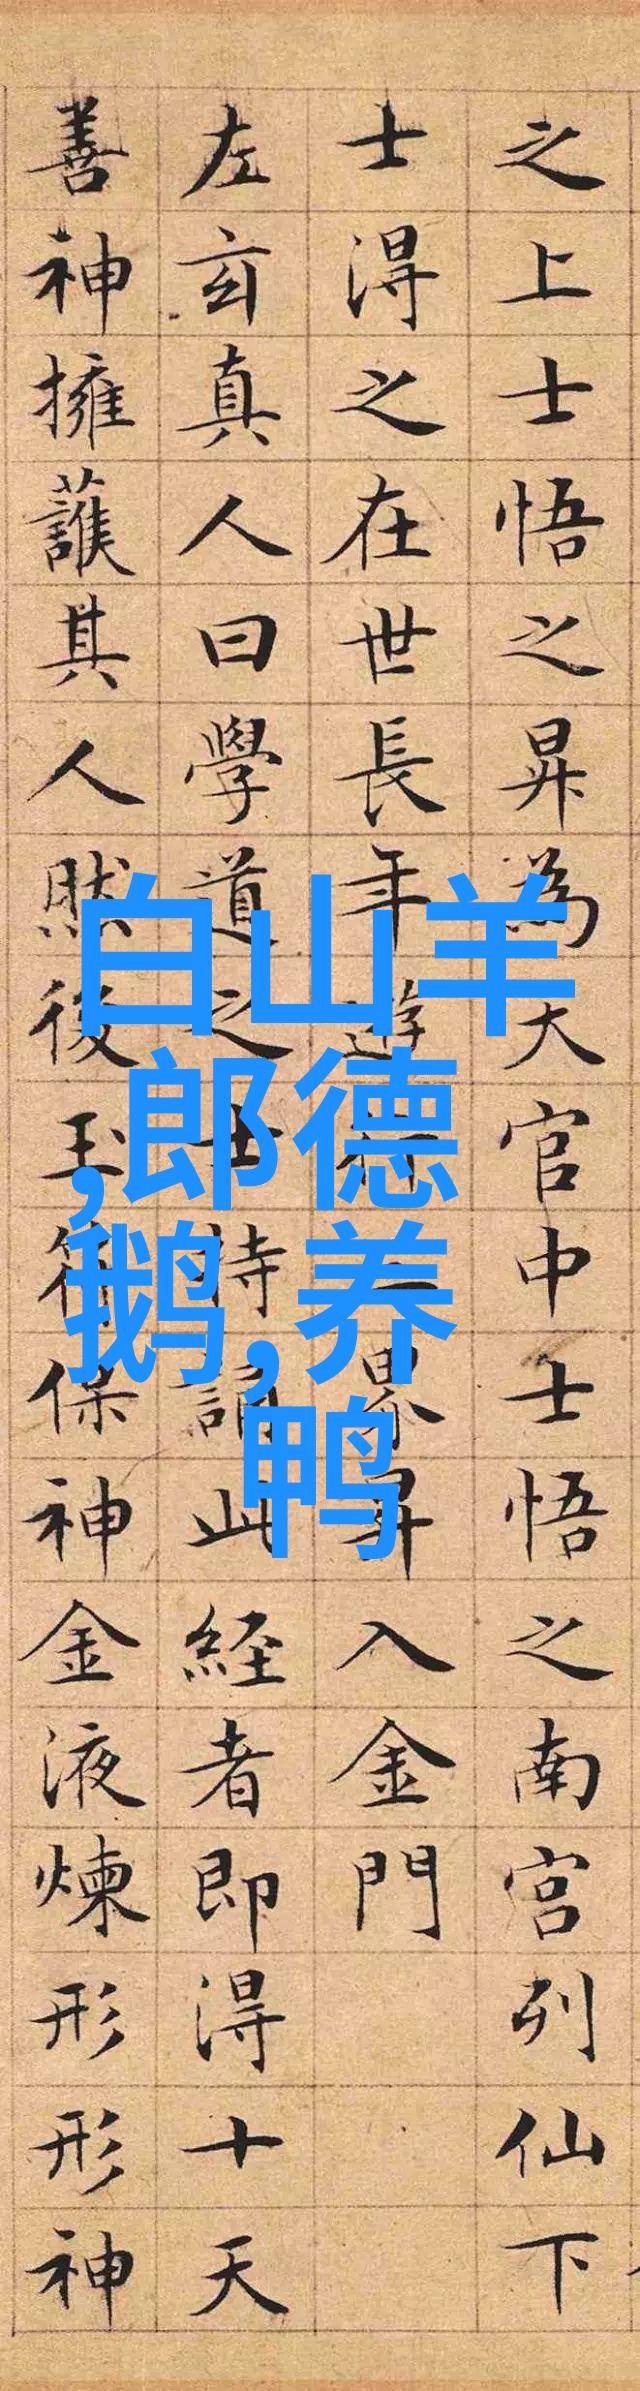 之上士悟之昇為大官中士悟之南宮列仙下
士得之在世長年遊行三界昇入金門
左玄真人曰學道之士持誦此經者即得十天
善神擁護其人然後玉符保神金液煉形形神
白山羊
,郎德
鹅,养
鸭